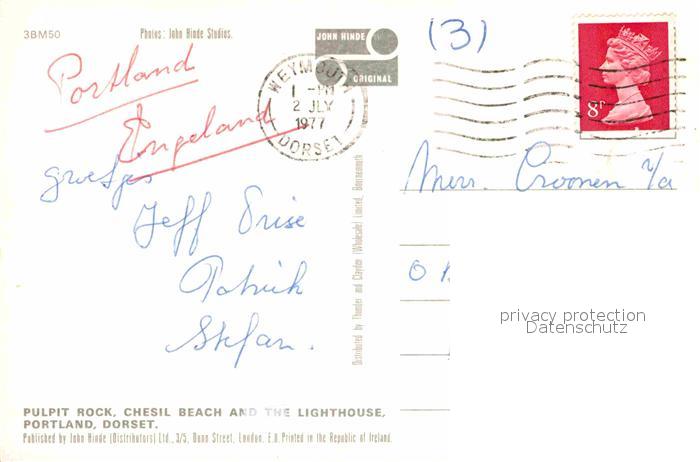 3BM50
Photos: John Hinde Studios.
JOHN HINDE
ORIGINAL
(3)
WEYMOUTH
2 JLY
1977
DORSET
8P
Portland
Engeland
groetjes
Jeff Drise
Patrick
Stefan.
Distributed by Thunder and Clayden (Wholesale) Limited, Bournemouth
Croonen
privacy protection
Datenschutz
PULPIT ROCK, CHESIL BEACH AND THE LIGHTHOUSE,
PORTLAND, DORSET.
Published by John Hinde (Distributors) Ltd., 3/5, Dunn Street, London, E.8. Printed in the Republic of Ireland.